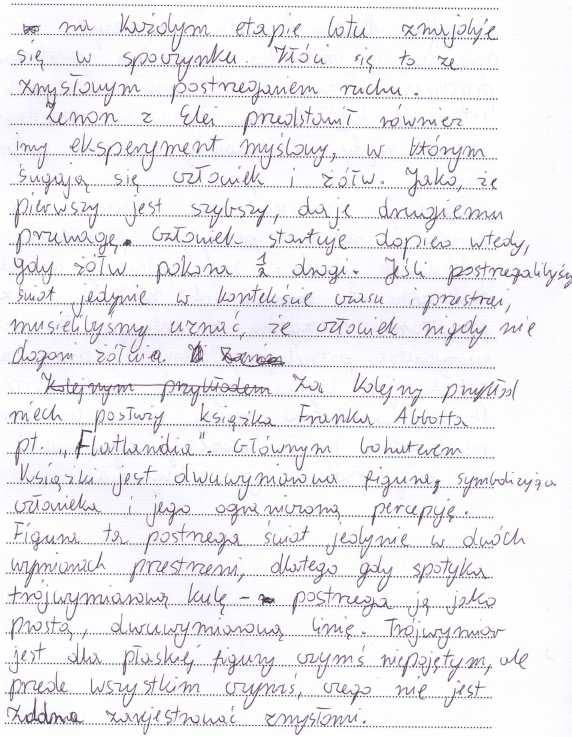 na każdym etapie lotu znajduje
się w spoczynku. Kłóci się to ze
zmysłowym postrzeganiem ruchu.
Zenon z Elei przedstawił również
inny eksperyment myślowy, w którym
ścigają się człowiek i żółw. Jako, że
pierwszy jest szybszy, daje drugiemu
przewagę. Człowiek startuje dopiero wtedy,
gdy żółw pokona 1/2 drogi. Jeśli postrzegalibyśmy
świat jedynie w kontekście czasu i przestrzeni,
musielibyśmy uznać, że człowiek nigdy nie
dogoni żółwia.
Kolejnym przykładem Za kolejny przykład
niech posłuży książka Franka Abbotta
pt. „Flatlandia". Głównym bohaterem
książki jest dwuwymiarowa figura, symbolizująca
człowieka i jego ograniczoną percepcję.
Figura ta postrzega świat jedynie w dwóch
wymiarach przestrzeni, dlatego gdy spotyka
trójwymiarową kulę – postrzega ją jako
prostą, dwuwymiarową linię. Trójwymiar
jest dla płaskiej figury czymś niepojętym, ale
przede wszystkim czymś, czego nie jest
zdolna zarejestrować zmysłami.